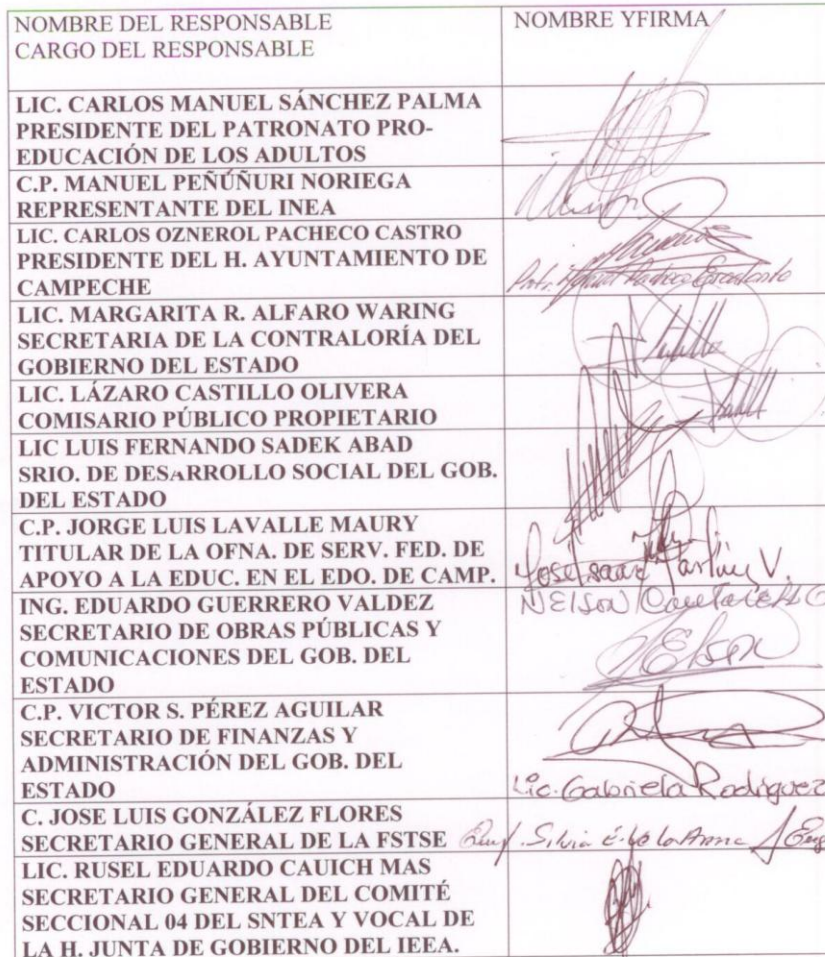 NOMBRE DEL RESPONSABLE
CARGO DEL RESPONSABLE
NOMBRE YFIRMA
LIC. CARLOS MANUEL SÁNCHEZ PALMA
PRESIDENTE DEL PATRONATO PRO-
EDUCACIÓN DE LOS ADULTOS
C.P. MANUEL PEÑÚÑURI NORIEGA
REPRESENTANTE DEL INEA
LIC. CARLOS OZNEROL PACHECO CASTRO
PRESIDENTE DEL H. AYUNTAMIENTO DE
CAMPECHE
Pacheco
LIC. MARGARITA R. ALFARO WARING
SECRETARIA DE LA CONTRALORÍA DEL
GOBIERNO DEL ESTADO
LIC. LÁZARO CASTILLO OLIVERA
COMISARIO PÚBLICO PROPIETARIO
LIC LUIS FERNANDO SADEK ABAD
SRIO. DE DESARROLLO SOCIAL DEL GOB.
DEL ESTADO
C.P. JORGE LUIS LAVALLE MAURY
TITULAR DE LA OFNA. DE SERV. FED. DE
APOYO A LA EDUC. EN EL EDO. DE CAMP.
José Isaac V.
ING. EDUARDO GUERRERO VALDEZ
SECRETARIO DE OBRAS PÚBLICAS Y
COMUNICACIONES DEL GOB. DEL
ESTADO
NElson
NElson
C.P. VICTOR S. PÉREZ AGUILAR
SECRETARIO DE FINANZAS Y
ADMINISTRACIÓN DEL GOB. DEL
ESTADO
Lic. Gabriela Rodríguez
C. JOSE LUIS GONZÁLEZ FLORES
SECRETARIO GENERAL DE LA FSTSE
Silvia E.
LIC. RUSEL EDUARDO CAUICH MAS
SECRETARIO GENERAL DEL COMITÉ
SECCIONAL 04 DEL SNTEA Y VOCAL DE
LA H. JUNTA DE GOBIERNO DEL IEEA.